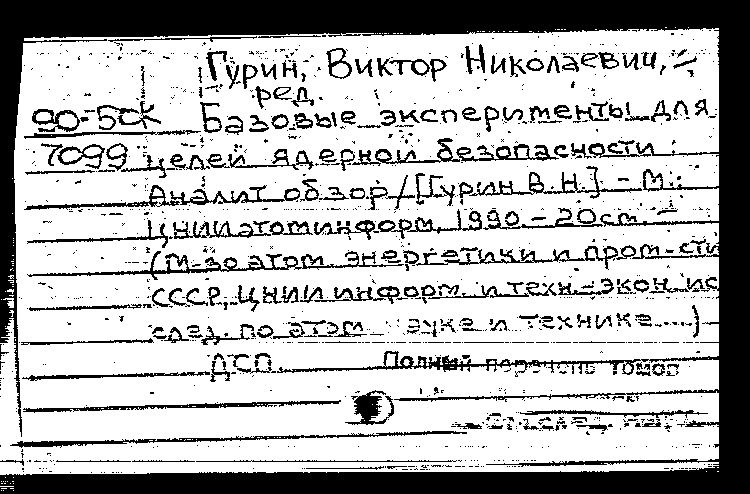 Гурин, Виктор Николаевич,
ред.
90-5СК Базовые эксперименты для
7099 целей ядерной безопасности :
Аналит обзор/[Гурин В.Н.]. - М.:
ЦНИИатоминформ, 1990. - 20см. -
(М-во атом. энергетики и пром-сти
СССР, ЦНИИ информ. и техн.-экон. ис
след. по атом науке и технике....)
ДСП. Полный перечень томов
след.